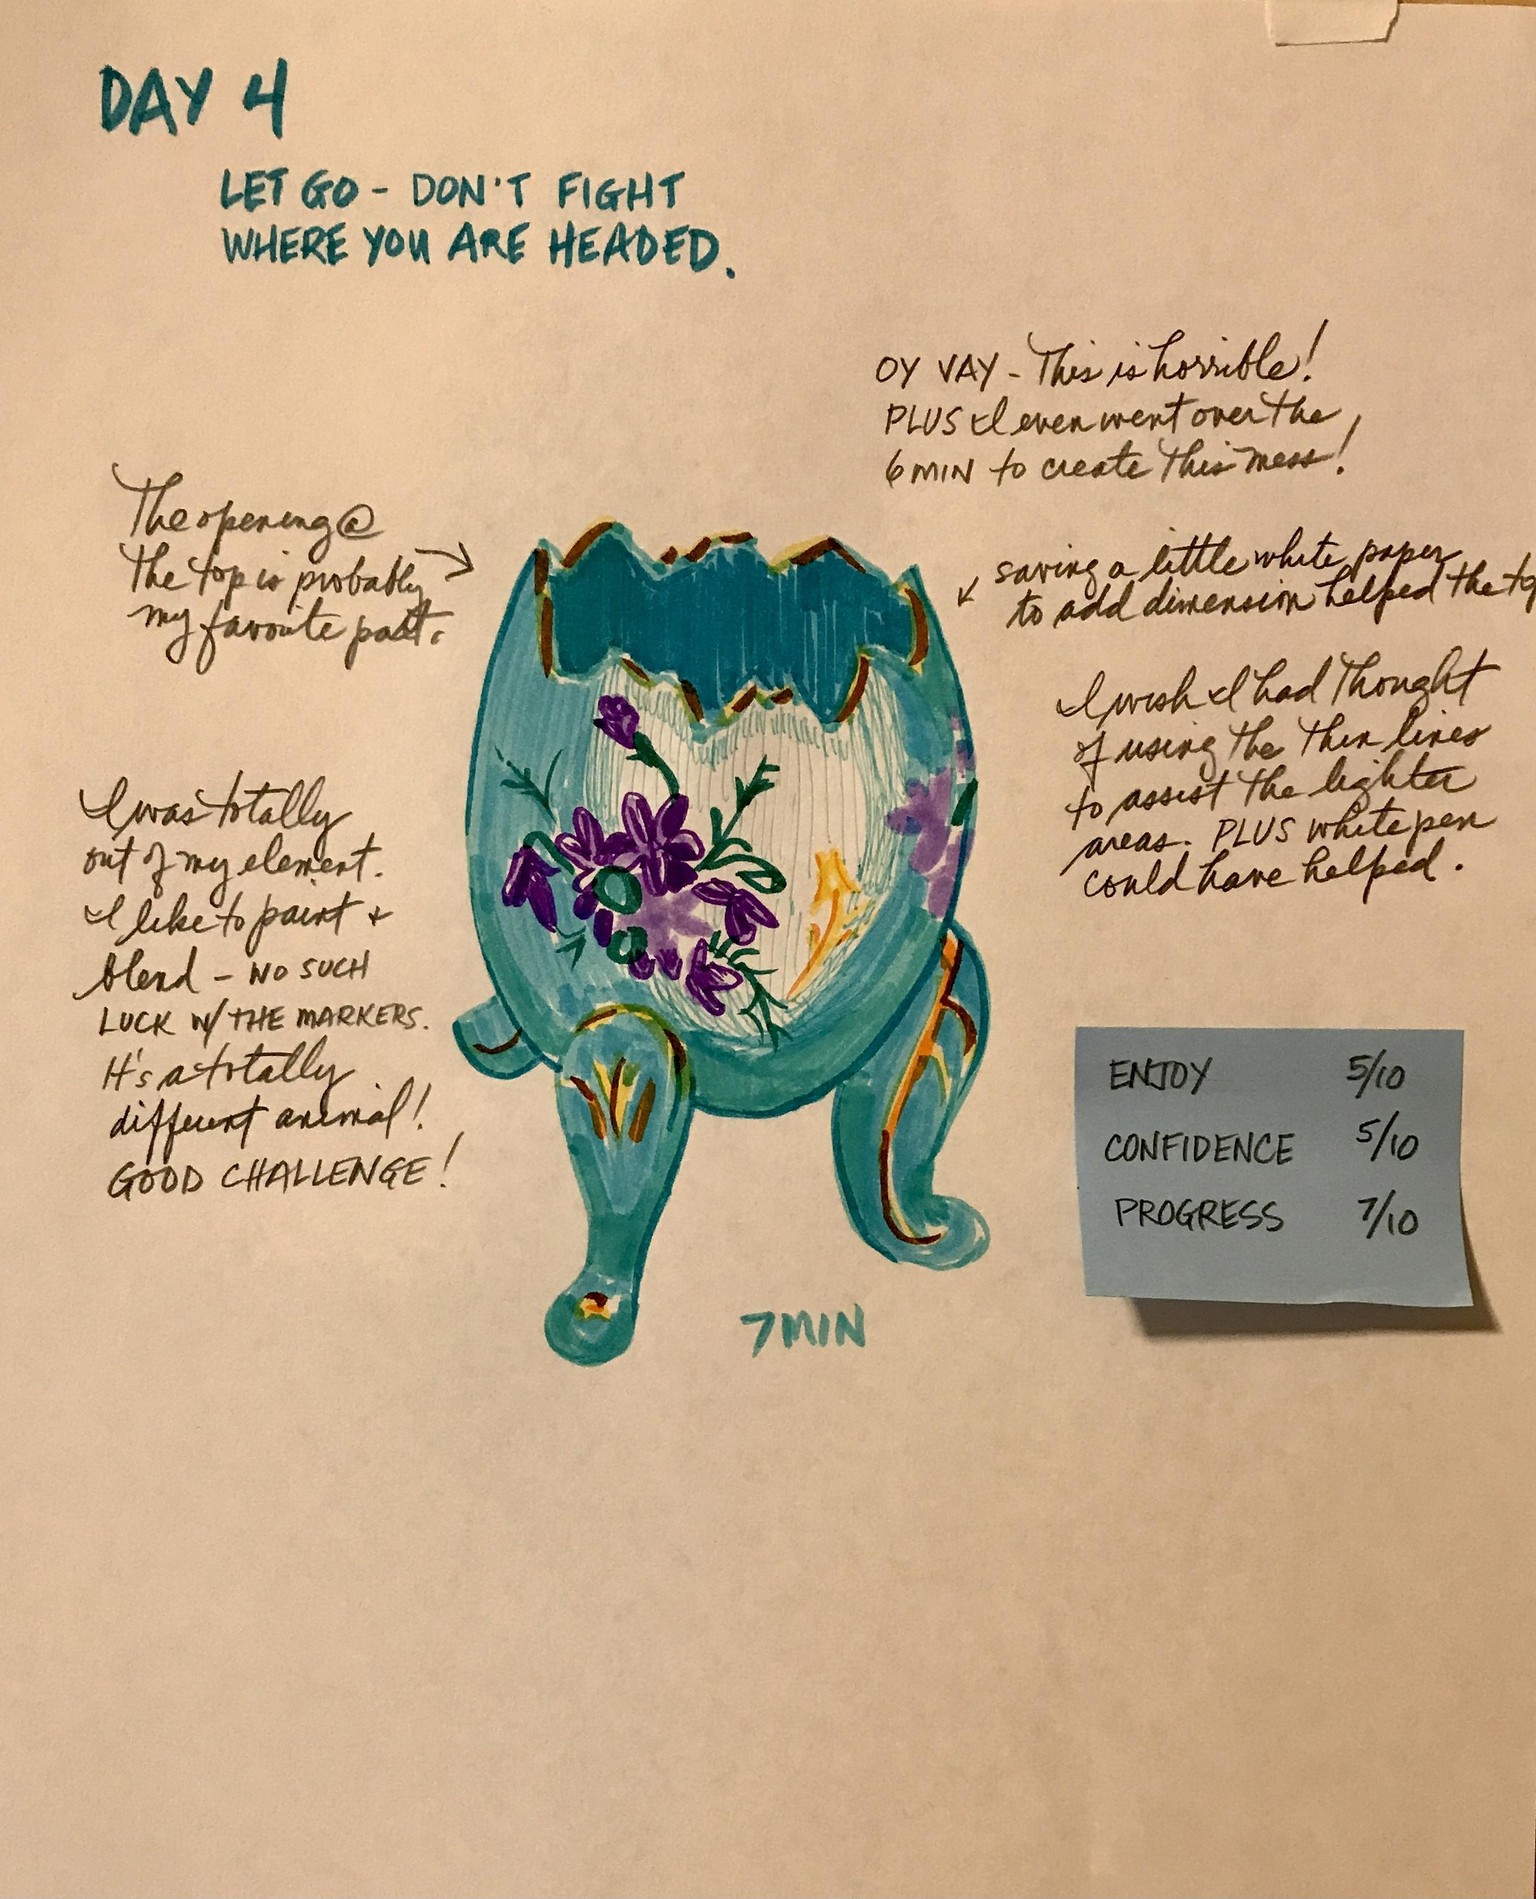 DAY 4
LET GO - DON'T FIGHT
WHERE YOU ARE HEADED.
OY VAY - This is horrible!
PLUS I even went over the
6 MIN to create this mess!
The opening @
the top is probably
my favorite part.
saving a little white paper
to add dimension helped the to
I wish I had thought
of using the thin lines
to assist the lighter
areas. PLUS white pen
could have helped.
I was totally
out of my element.
I like to paint +
blend - NO SUCH
LUCK W/ THE MARKERS.
It's a totally
different animal!
GOOD CHALLENGE!
ENJOY 5/10
CONFIDENCE 5/10
PROGRESS 7/10
7 MIN